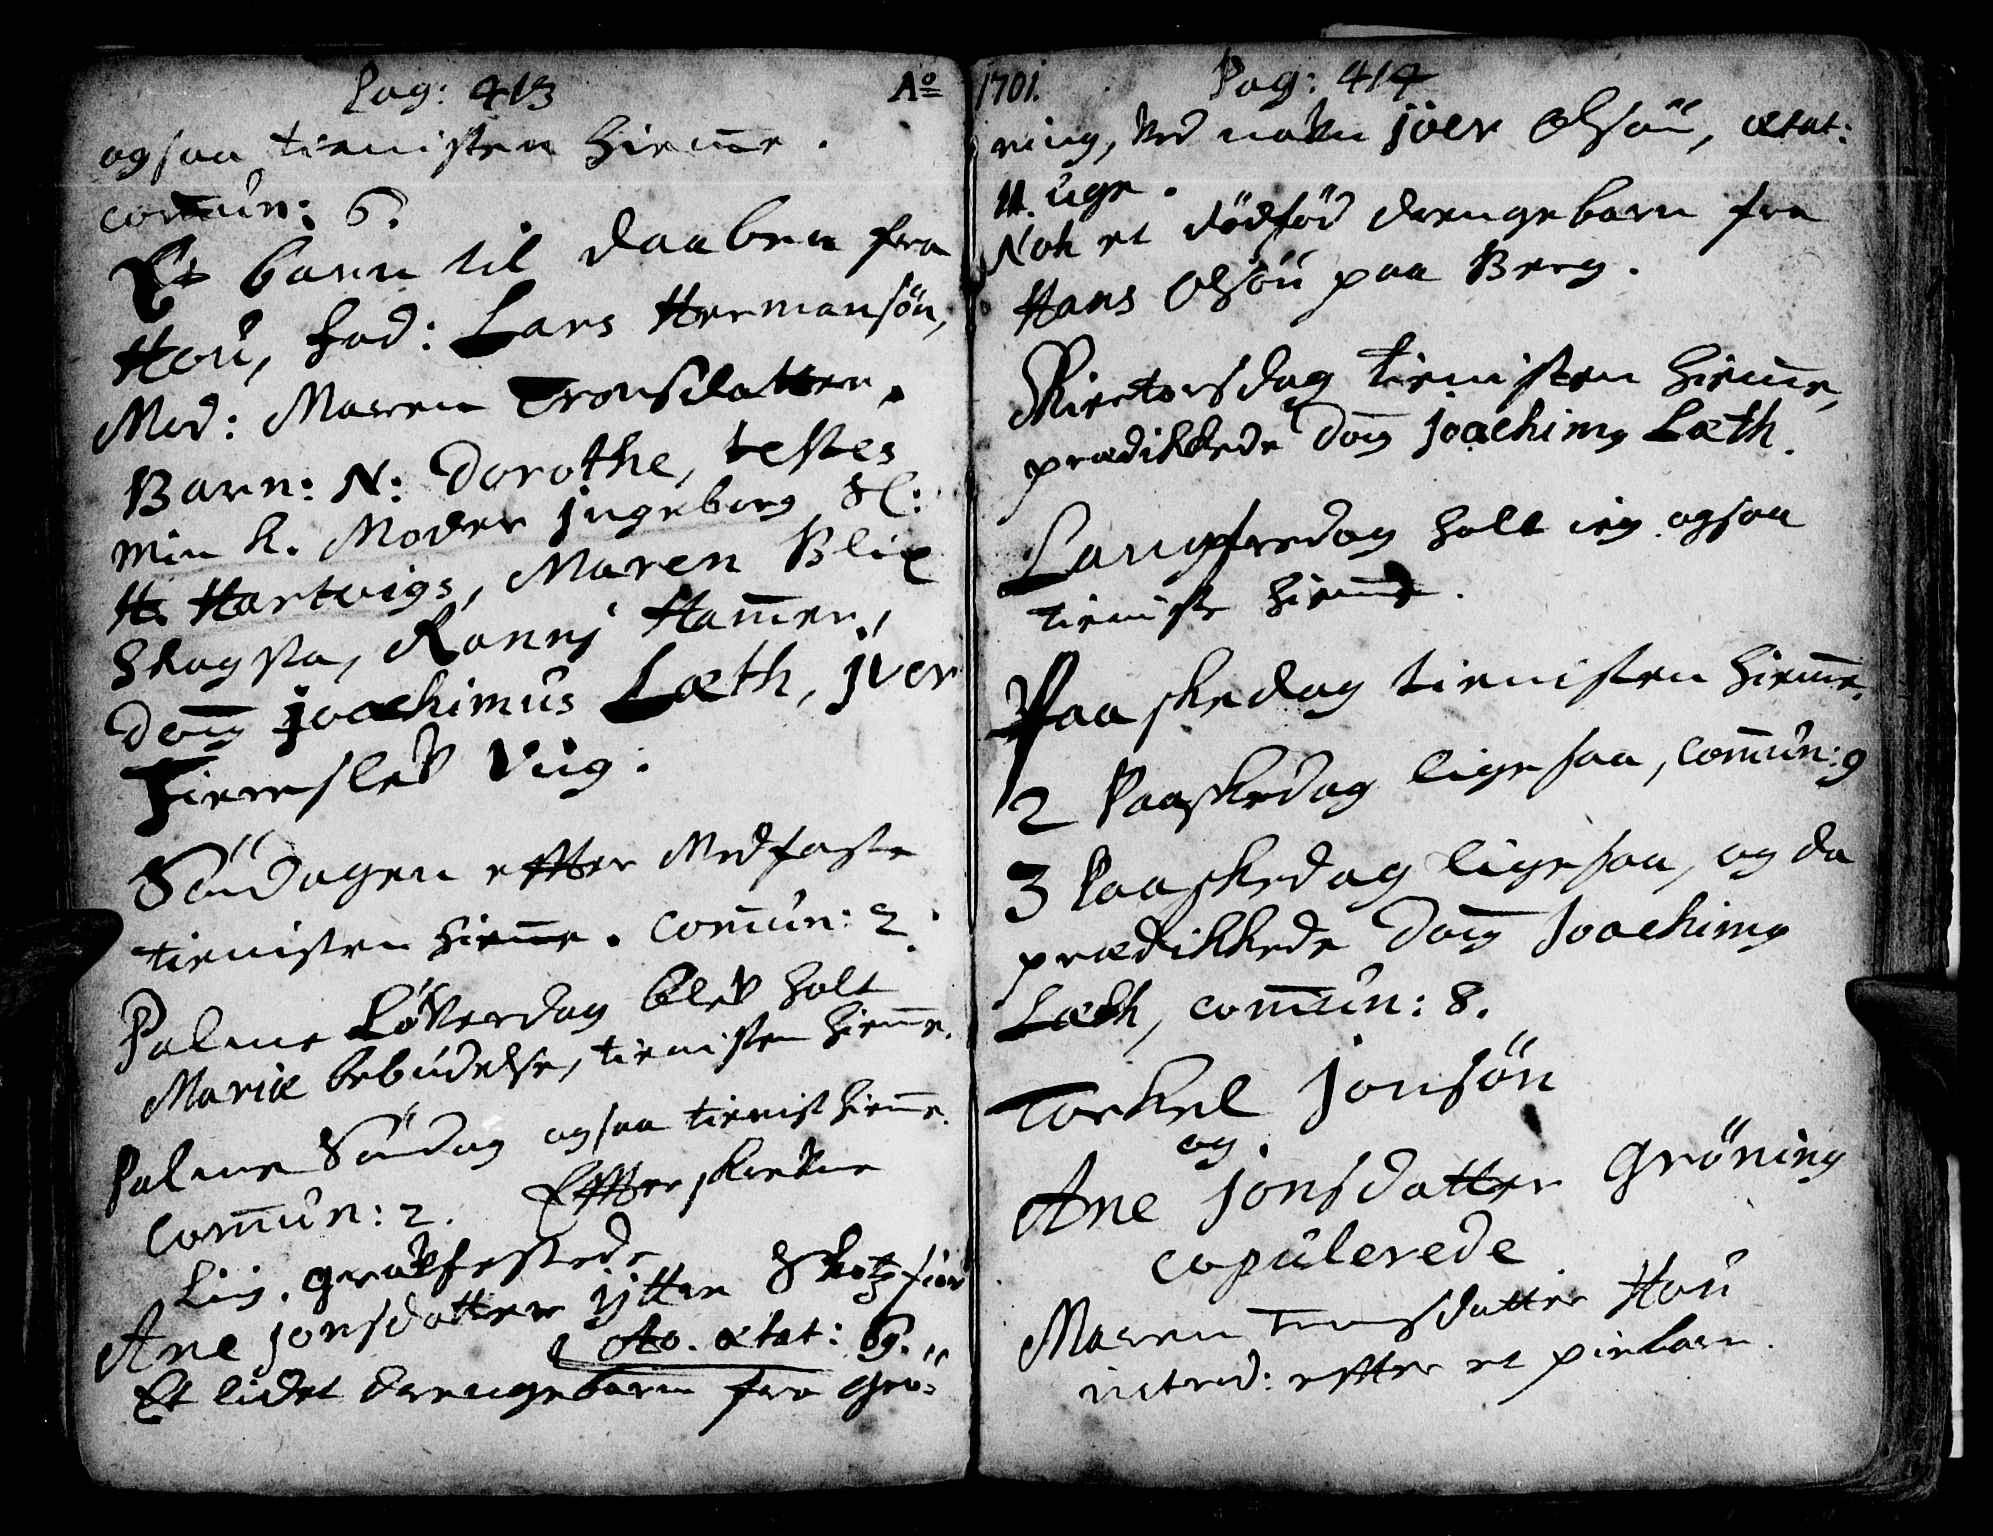 Pag: 413 Aº
ogsaa tienisten hiem̅e.
com̅ún: 6.
Et barn til daaben fra
Hoú, fad: Lars Hermansön,
Mod: Maren Tronsdatter.
Barn: N: Dorothe, testes
min k. Moder jngeborg Sl:
Hr Hartvigs, Maren Blix
Skogsta, Ronnj Ham̅er,
Dom̅ joachimús Læth, jver
Fierreslev Ung:
Söndagen effter Midfaste
tienisten hiem̅e. Com̅ún: 2.
Palme Löverdag blev holt
Mariæ bebúdelse, tienisten hiem̅e.
Palme Söndag ogsaa tienist hiem̅e.
Com̅ún: 2. Effterskrevne
Liig. gravfestede
Ane jonsdatter ytter
Ao. ætat: 69.
Et lidet drengebarn fra Grö-
1701. Pag: 414
ning, ved navn joer Olsön, ætat:
11. uge.
Nok et dödföd drengebarn fra
Hans Olsön paa Berg.
Skiertorsdag tienisten hiem̅e,
prædikkede Dom̅ joachimg Læth.
Langfredag holt ieg ogsaa
tieniste hiem̅e.
Paaskedag tienisten hiem̅e.
2 Paaskedag ligesaa, com̅ún: 9
3 Paaskedag ligesaa, og da
prædikkede Dom̅ Joachimg
Læth, com̅ún: 8.
Torkel jonsön
og
Ane jonsdatter Gröning
copúlerede
Maren Tronsdatter Hoú
introd: effter et piebarn.